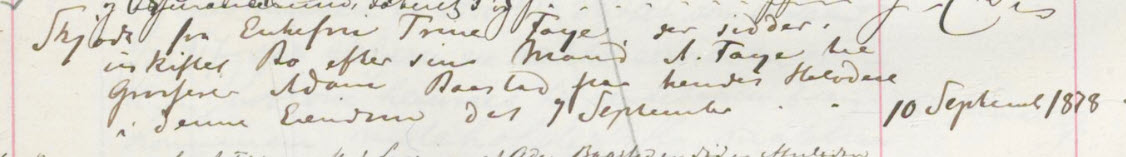 Skjøde fra Enkefru Trine Faye, der sidder i
uskiftet Bo efter sin Mand A. Faye til
Grosserer Adam Baastad paa hendes Halvdeel
i denne Eiendom dat 7 September 10 Septemb 1878